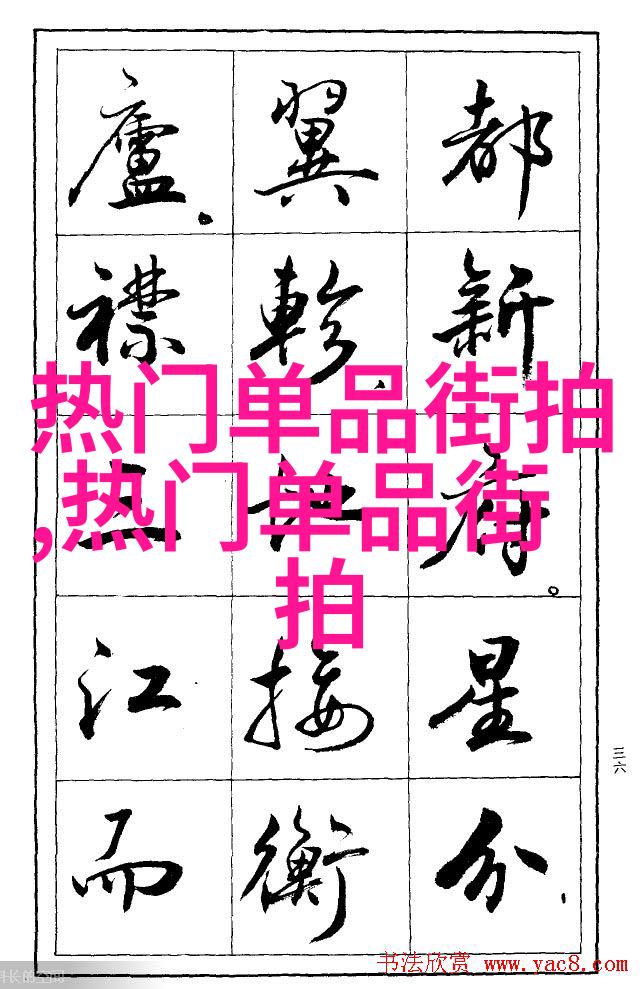 都新府。星分、
翼軫、地接衡
廬。襟三江而
热门单品街拍
,热门单品街
拍
三六
书法欣赏 www.yac8.com
长的空间